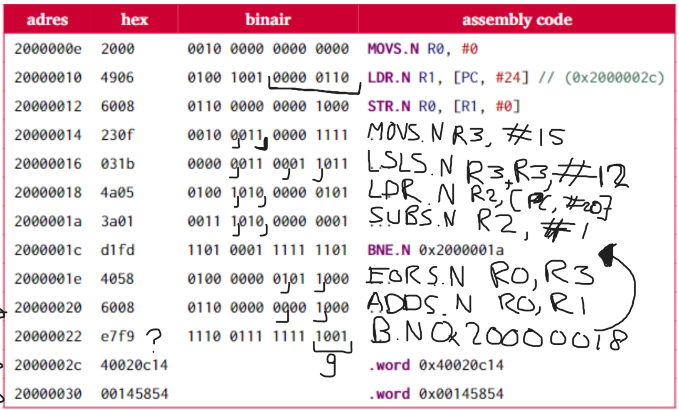 adres hex binair assembly code
2000000e 2000 0010 0000 0000 0000 MOVS.N R0, #0
20000010 4906 0100 1001 0000 0110 LDR.N R1, [PC, #24] // (0x2000002c)
20000012 6008 0110 0000 0000 1000 STR.N R0, [R1, #0]
20000014 230f 0010 0011 0000 1111 MOVS.N R3, #15
20000016 031b 0000 0011 0001 1011 LSLS.N R3, R3, #12
20000018 4a05 0100 1010 0000 0101 LDR.N R2, [PC, #20]
2000001a 3a01 0011 1010 0000 0001 SUBS.N R2, #1
2000001c d1fd 1101 0001 1111 1101 BNE.N 0x2000001a
2000001e 4058 0100 0000 0101 1000 EORS.N R0, R3
20000020 6008 0110 0000 0000 1000 ADDS.N R0, R1
20000022 e7f9 ? 1110 0111 1111 1001 B.N 0x20000018
9
2000002c 40020c14 .word 0x40020c14
20000030 00145854 .word 0x00145854